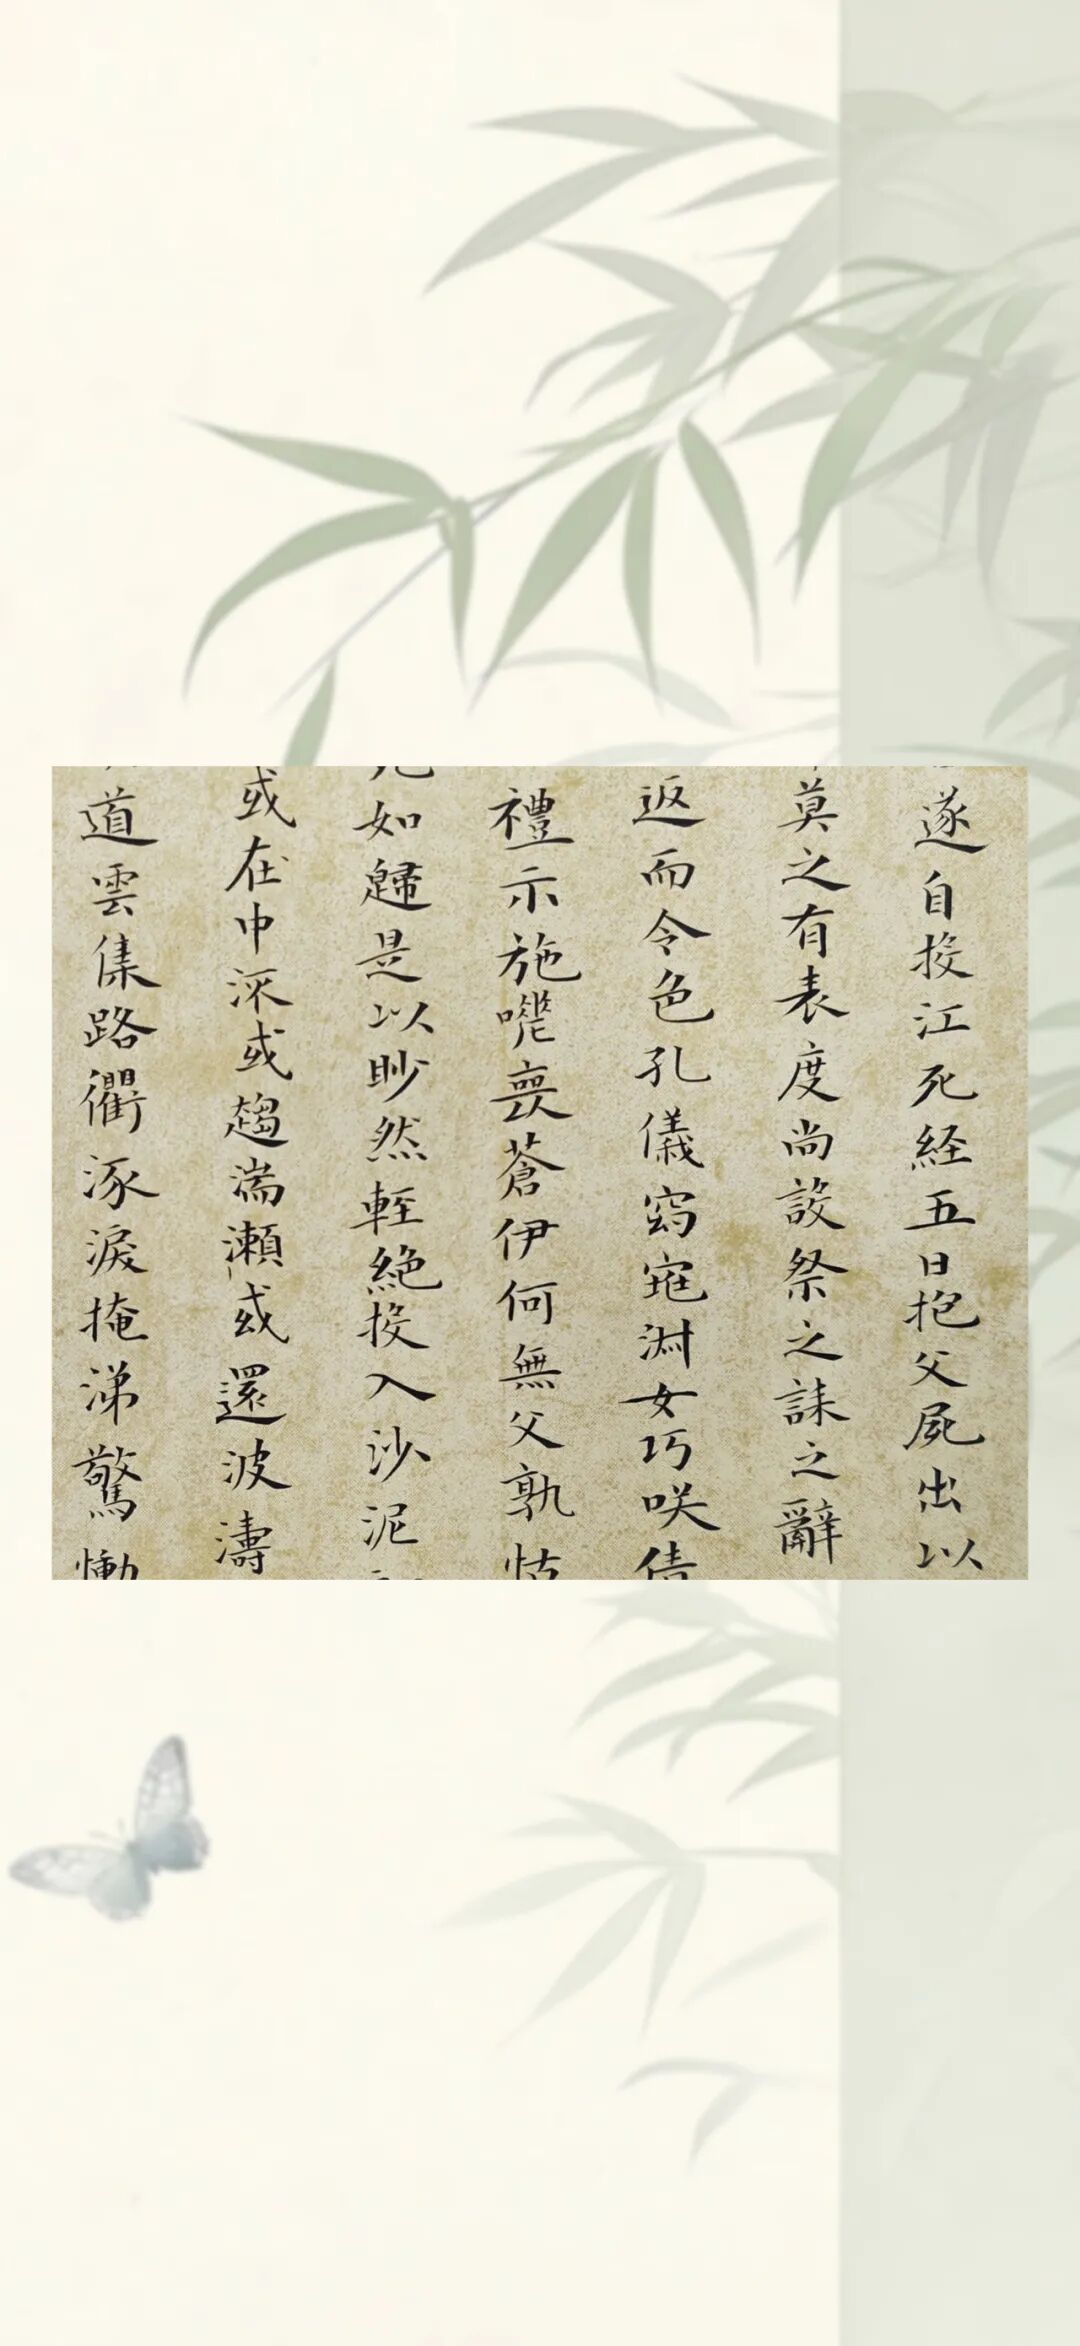 遂自投江死経五日抱父屍出以
莫之有表度尚設祭之誄之辭
返而令色孔儀窈窕淵女巧咲倩
禮示施嗟喪蒼伊何無父孰怙
如歸是以眇然輕絶投入沙泥
或在中流或趨湍瀬或還波濤
道雲集路衢泳淚掩涕驚慟